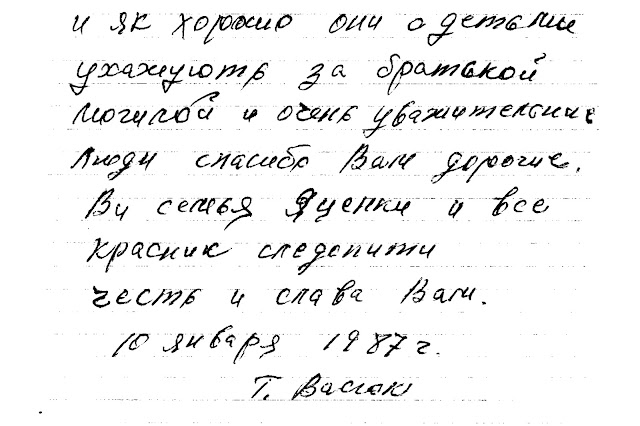 и як хорошо они с детьми
ухажують за братьской
могилой и очень уважительние
люди спасибо Вам дорогие.
Ви семья Яценки и все
красник следопити
честь и слава Вам.
10 января 1987 г.
Т. Васюк